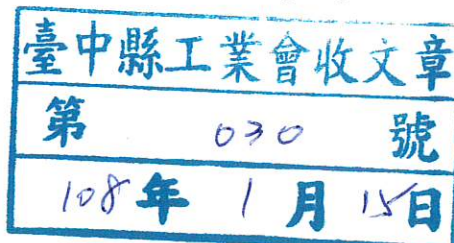 臺中縣工業會收文章
第 030 號
108年1月15日